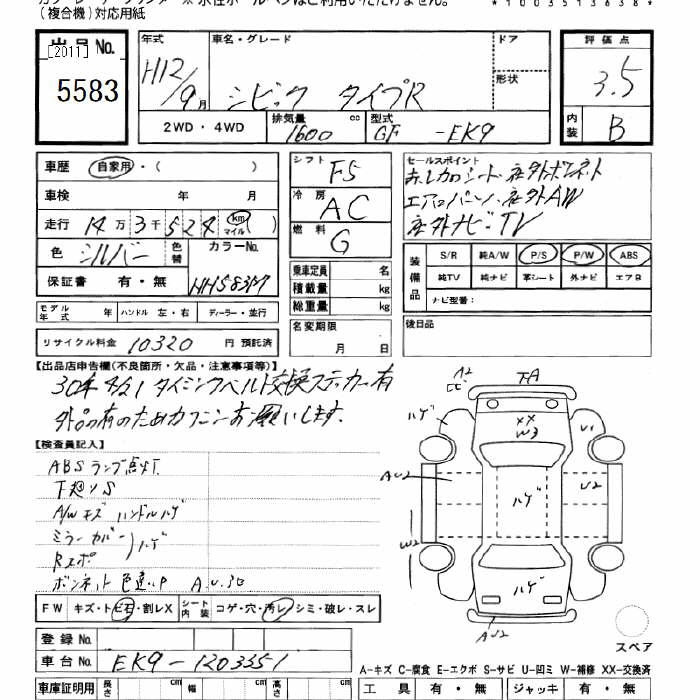 (複合機)対応用紙
*1003513638*
出品No.
[2011]
5583
年式 H12/9月
車名・グレード シビック タイプR
ドア
形状
2WD・4WD
排気量 1600 cc
型式 GF -EK9
評価点 3.5
内装 B
車歴 自家用・( )
車検 年 月
走行 14万3千524 km マイル ( )
色 シルバー 色替
カラーNo. NH583M
保証書 有・無
シフト F5
冷房 AC
燃料 G
乗車定員 名
積載量 kg
総重量 kg
セールスポイント
赤レカロシート、社外ボンネット
エアロバンパー、社外AW
社外ナビ・TV
装備品
S/R 純A/W P/S P/W ABS
純TV 純ナビ 革シート 外ナビ エアB
ナビ型番:
モデル年式 年 ハンドル 左・右 ディーラー・並行
名変期限
月 日
後日品
リサイクル料金 10320 円 預託済
【出品店申告欄(不良箇所・欠品・注意事項等)】
30年4/21 タイミングベルト交換ステッカー有
外品の有のためカクニンお願いします。
【検査員記入】
ABSランプ点灯
下廻りS
A/Wキズ ハンドルハゲ
ミラーカバー
Rエボ ハゲ
ボンネット色違P A.U.30
FW キズ・ト ビ石・割レX
シート内装 コゲ・穴・汚レ・シミ・破レ・スレ
登録No.
車台No. EK9-1203351
車庫証明用 長さ cm 幅 cm 高さ cm
A2
TA
ハゲ
XX
W3
U1
AU2
ハゲ
U2
W2
ハゲ
AU2
スペア
A-キズ C-腐食 E-エクボ S-サビ U-凹ミ W-補修 XX-交換済
工具 有・無 ジャッキ 有・無